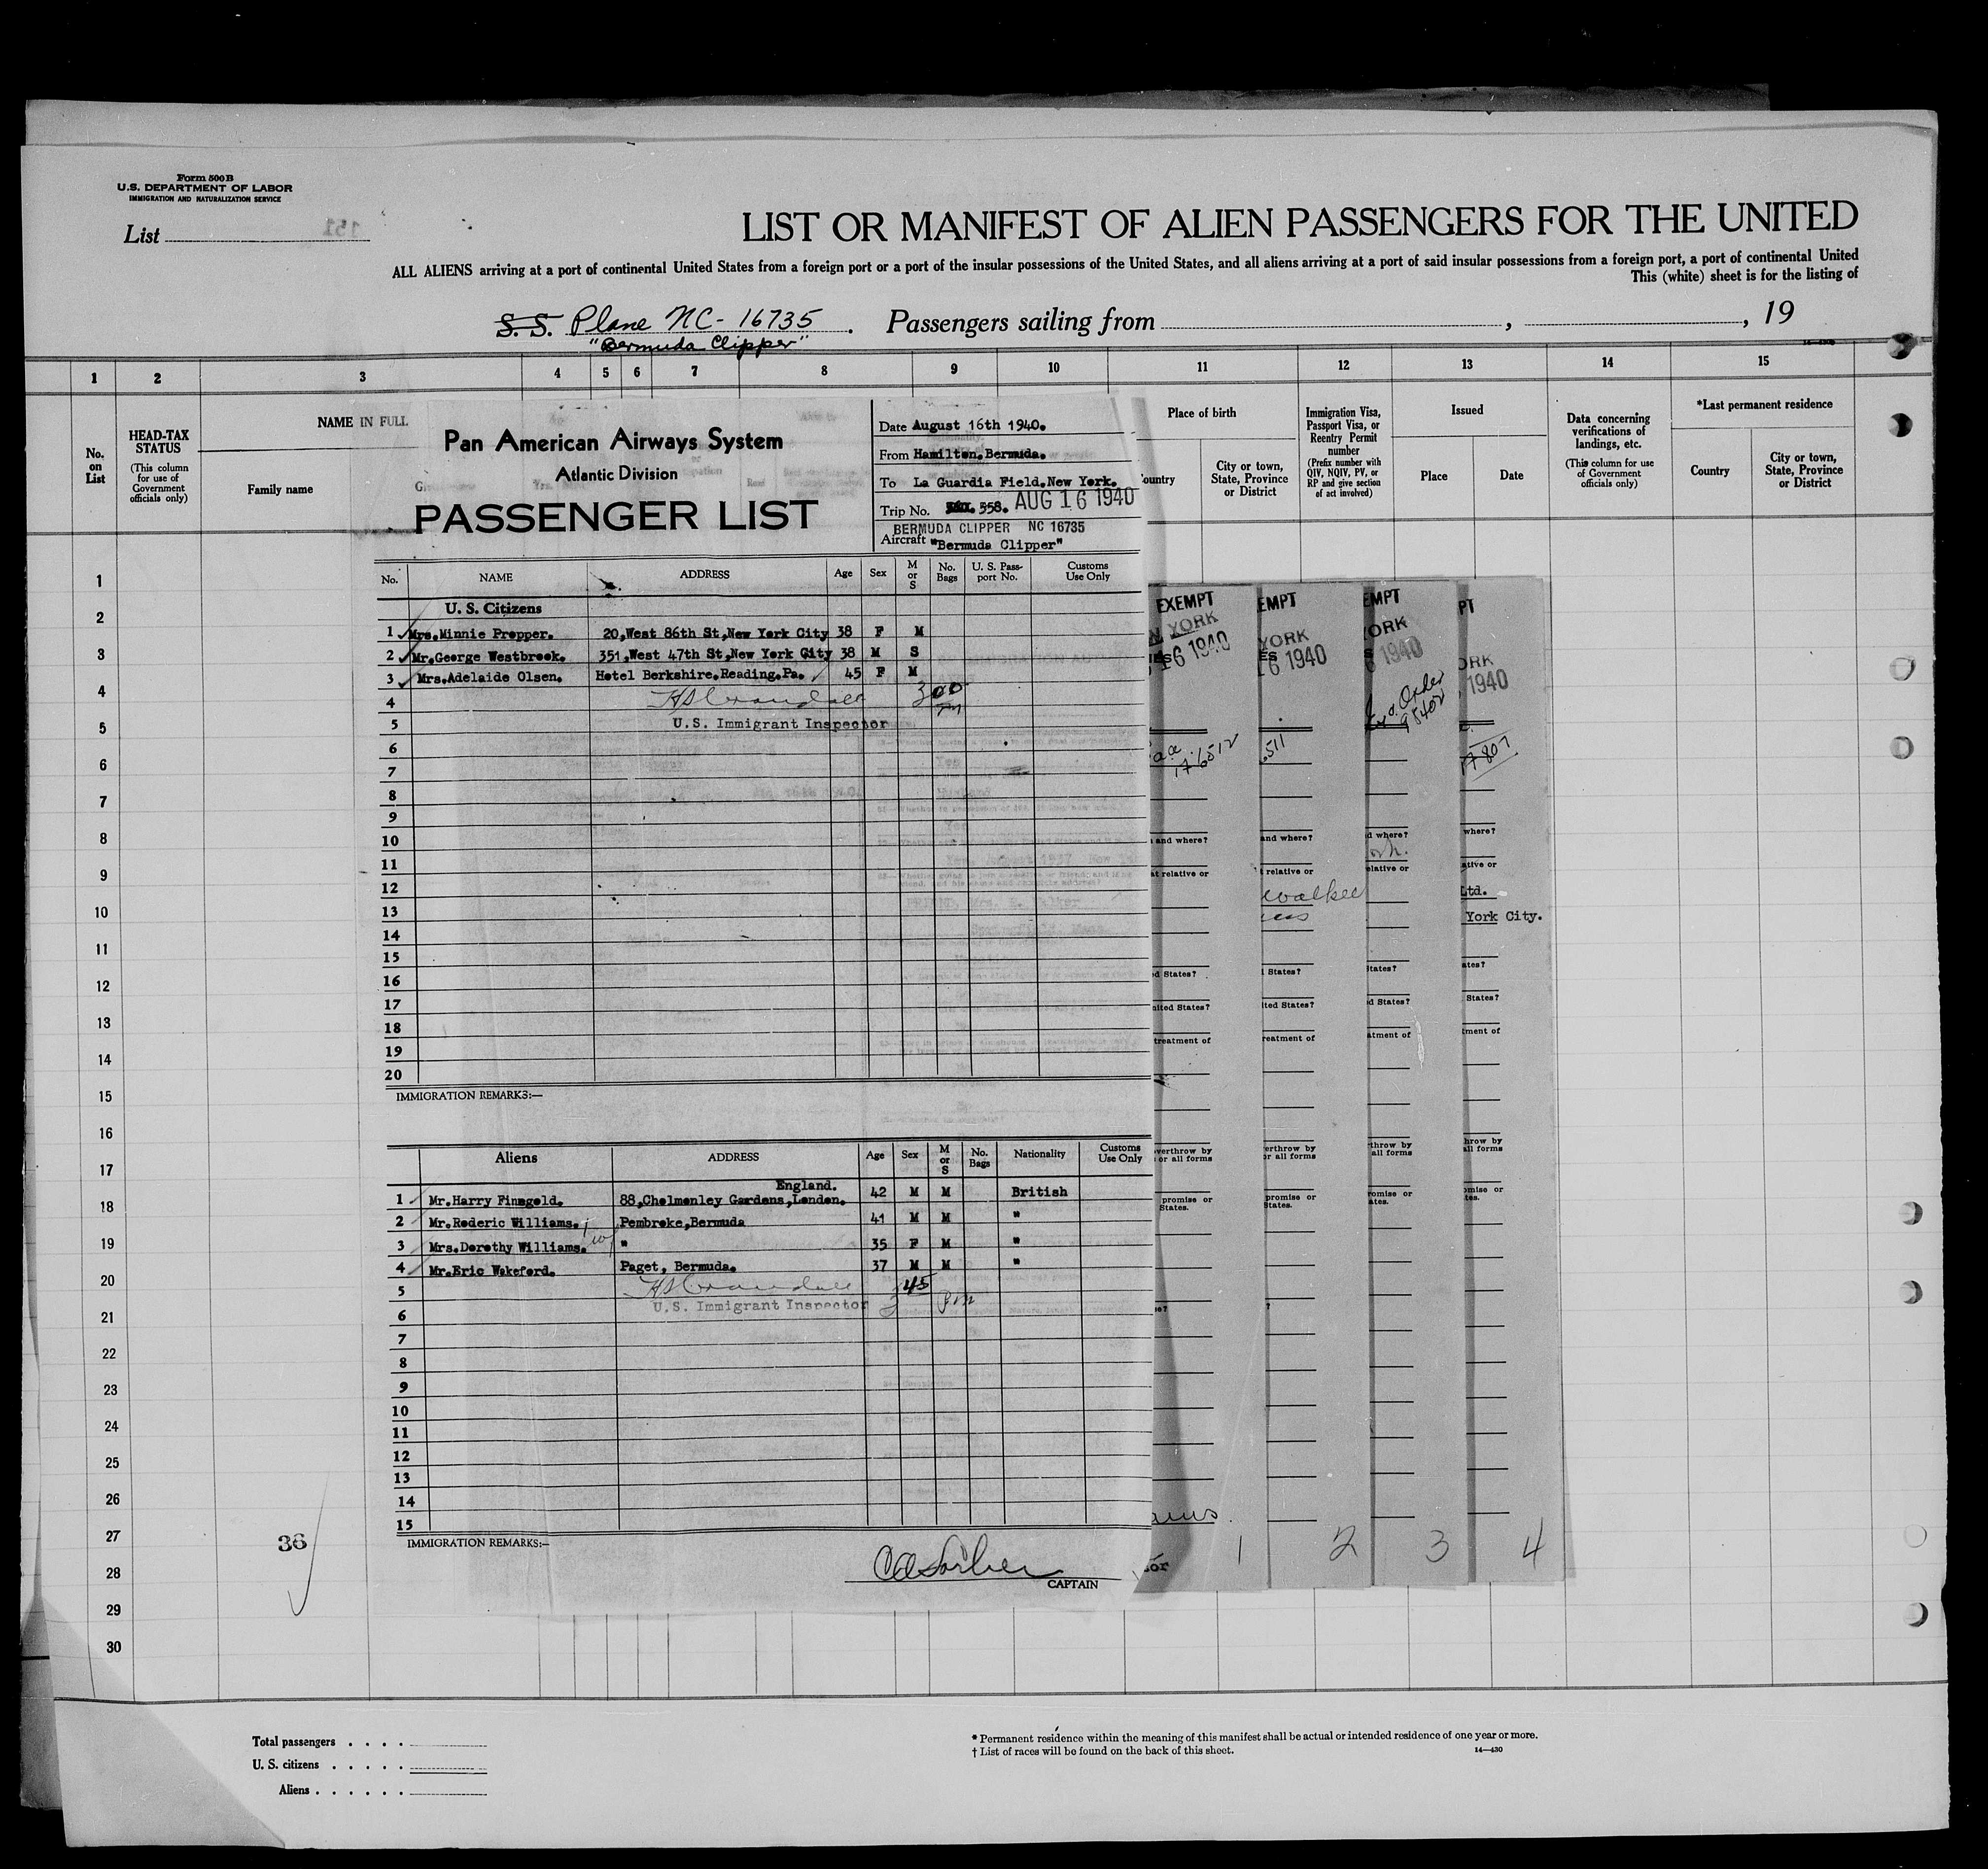 Form 500 B
U.S. DEPARTMENT OF LABOR
IMMIGRATION AND NATURALIZATION SERVICE
List
151
LIST OR MANIFEST OF ALIEN PASSENGERS FOR THE UNITED
ALL ALIENS arriving at a port of continental United States from a foreign port or a port of the insular possessions of the United States, and all aliens arriving at a port of said insular possessions from a foreign port, a port of continental United
This (white) sheet is for the listing of
S. S. Plane NC-16735. Passengers sailing from , , 19
"Bermuda Clipper"
1 2 3 4 5 6 7 8 9 10 11 12 13 14 15
No. on List
HEAD-TAX STATUS
(This column for use of Government officials only)
NAME IN FULL
Family name
Place of birth
ountry
City or town, State, Province or District
Immigration Visa, Passport Visa, or Reentry Permit number
(Prefix number with QIV, NQIV, PV, or RP and give section of act involved)
Issued
Place
Date
Data concerning verifications of landings, etc.
(This column for use of Government officials only)
*Last permanent residence
Country
City or town, State, Province or District
Pan American Airways System
Atlantic Division
PASSENGER LIST
Date August 16th 1940.
From Hamilton.Bermuda.
To La Guardia Field.New York.
Trip No. 558. AUG 16 1940
BERMUDA CLIPPER NC 16735
Aircraft "Bermuda Clipper"
No. NAME ADDRESS Age Sex M or S No. Bags U. S. Pass- port No. Customs Use Only
U. S. Citizens
1 Mrs.Minnie Propper. 20,West 86th St,New York City 38 F M
2 Mr.George Westbrook. 351,West 47th St,New York City 38 M S
3 Mrs.Adelaide Olsen. Hotel Berkshire.Reading.Pa. 45 F M
4 HS Crandall 300 pm
5 U.S. Immigrant Inspector
6
7
8
9
10
11
12
13
14
15
16
17
18
19
20
IMMIGRATION REMARKS:—
Aliens ADDRESS Age Sex M or S No. Bags Nationality Customs Use Only
England.
1 Mr.Harry Finegold. 88,Cholmenley Gardens,London. 42 M M British
2 Mr.Roderic Williams. Pembroke,Bermuda 41 M M "
3 Mrs.Dorothy Williams. wf " 35 F M "
4 Mr.Eric Wakeford. Paget, Bermuda. 37 M M "
5 HS Crandall 345 pm
6 U.S. Immigrant Inspector
7
8
9
10
11
12
13
14
15
IMMIGRATION REMARKS:—
CAPTAIN
EXEMPT
YORK
16 1940
176512
and where?
at relative or
d States?
nited States?
treatment of
verthrow by
or all forms
promise or
States.
1
EMPT
YORK
16 1940
511
and where?
t relative or
walker
l States?
ited States?
reatment of
erthrow by
or all forms
promise or
States.
2
EMPT
ORK
1940
Order
d where?
elative or
tates?
d States?
atment of
throw by
all forms
romise or
ates.
3
PT
ORK
1940
where?
ative or
Ltd.
York City.
ates?
States?
tment of
hrow by
all forms
omise or
tes.
4
1
2
3
4
5
6
7
8
9
10
11
12
13
14
15
16
17
18
19
20
21
22
23
24
25
26
27
28
29
30
36
Total passengers . . . .
U. S. citizens . . . . .
Aliens . . . . . .
* Permanent residence within the meaning of this manifest shall be actual or intended residence of one year or more.
† List of races will be found on the back of this sheet.
14—430